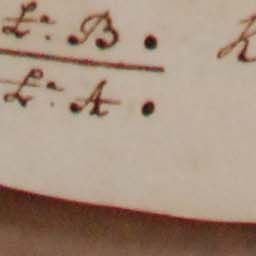 L: B. K
L: A.